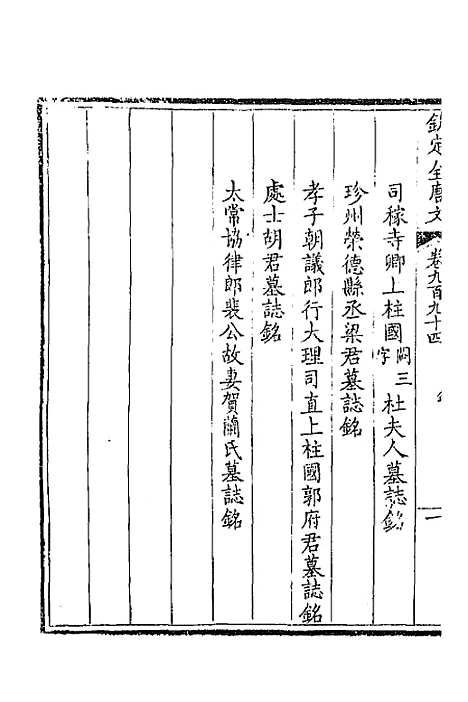 欽定全唐文 卷九百九十四 一
司稼寺卿上柱國闕三字杜夫人墓誌銘
珍州榮德縣丞梁君墓誌銘
孝子朝議郎行大理司直上柱國郭府君墓誌銘
處士胡君墓誌銘
太常協律郎裴公故妻賀蘭氏墓誌銘